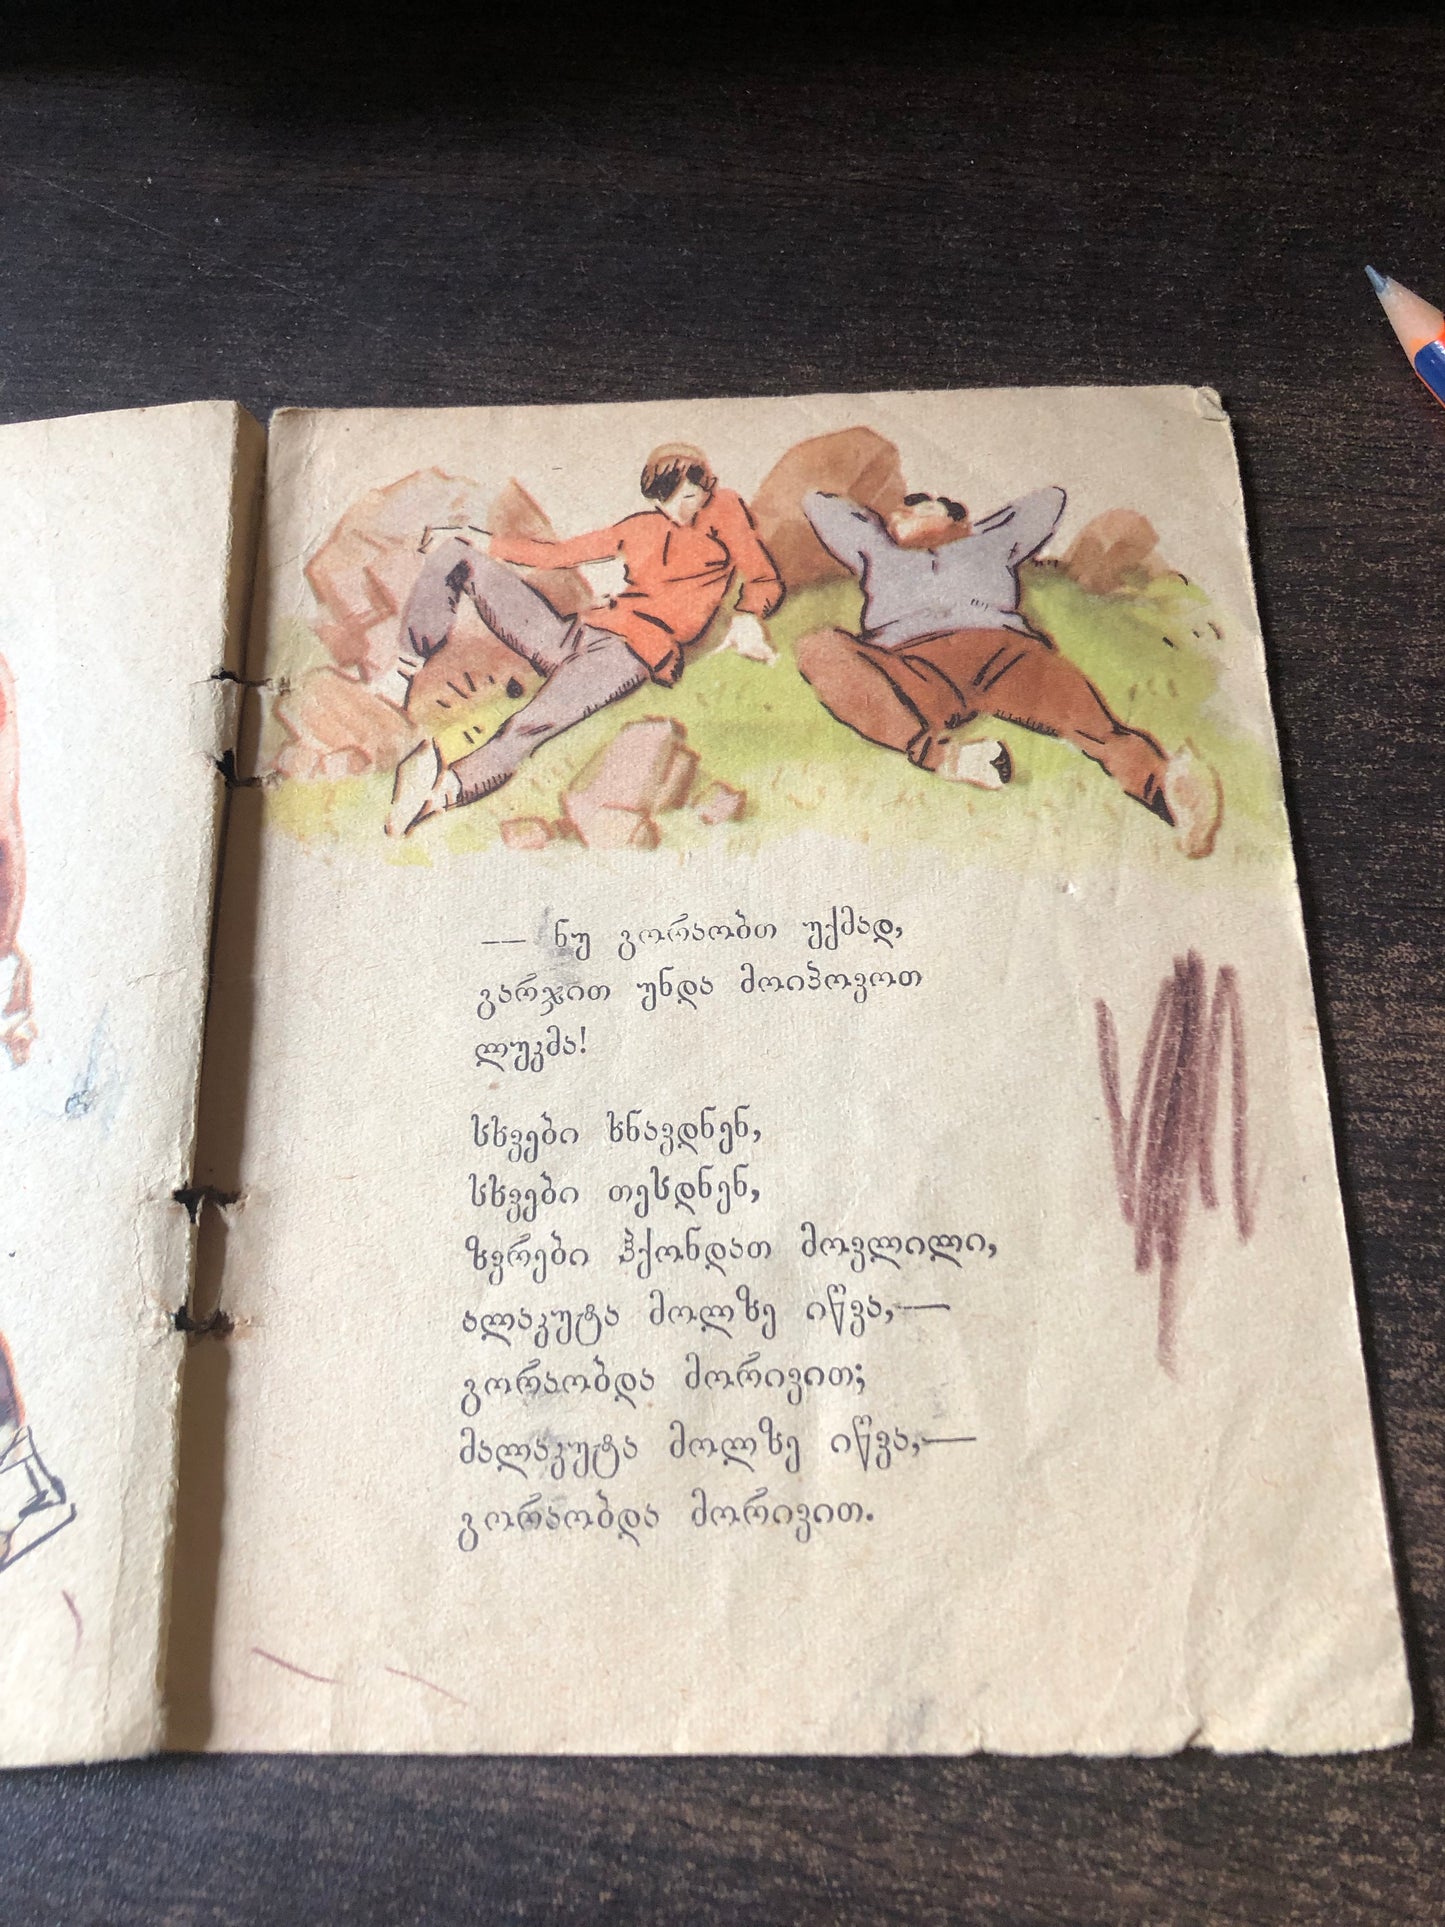 — ნუ გორაობთ უქმად,
გარჯით უნდა მოიპოვოთ
ლუკმა!
სხვები ხნავდნენ,
სხვები თესდნენ,
ზვრები ჰქონდათ მოვლილი,
ალაკუტა მოლზე იწვა,—
გორაობდა მორივით;
მალაკუტა მოლზე იწვა,—
გორაობდა მორივით.